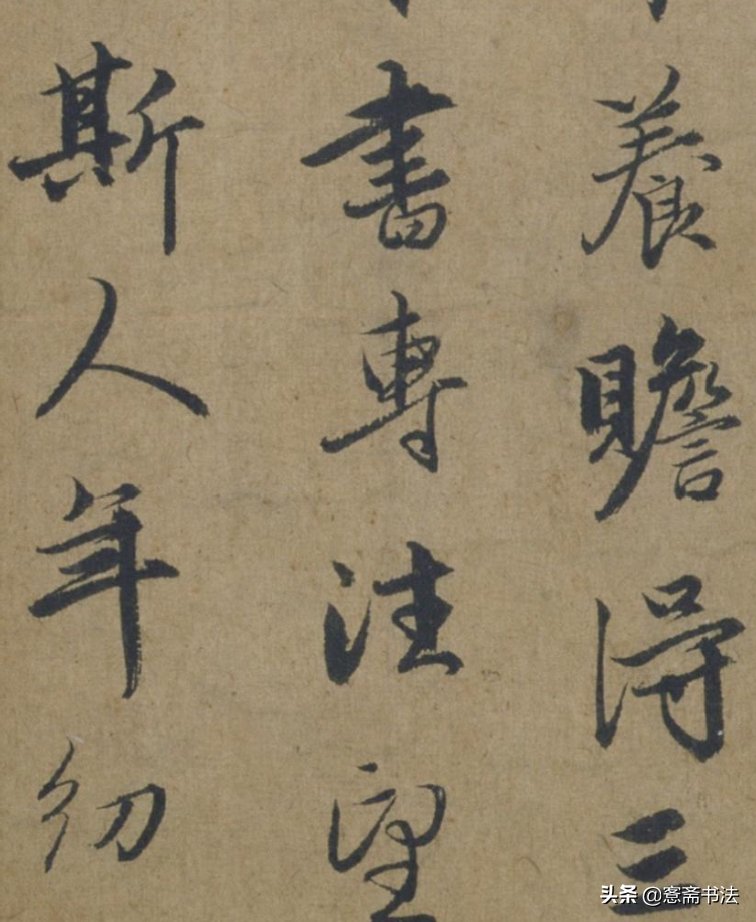 養贍得三
書專注望
斯人年幼
头条 @窓斋书法